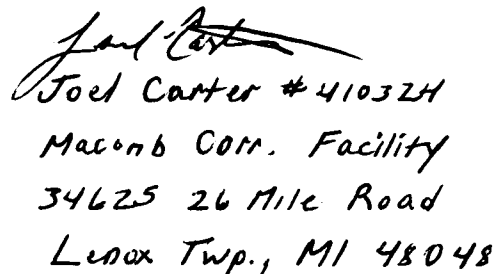 Joel Carter
Joel Carter # 410324
Macomb Corr. Facility
34625 26 Mile Road
Lenox Twp., MI 48048